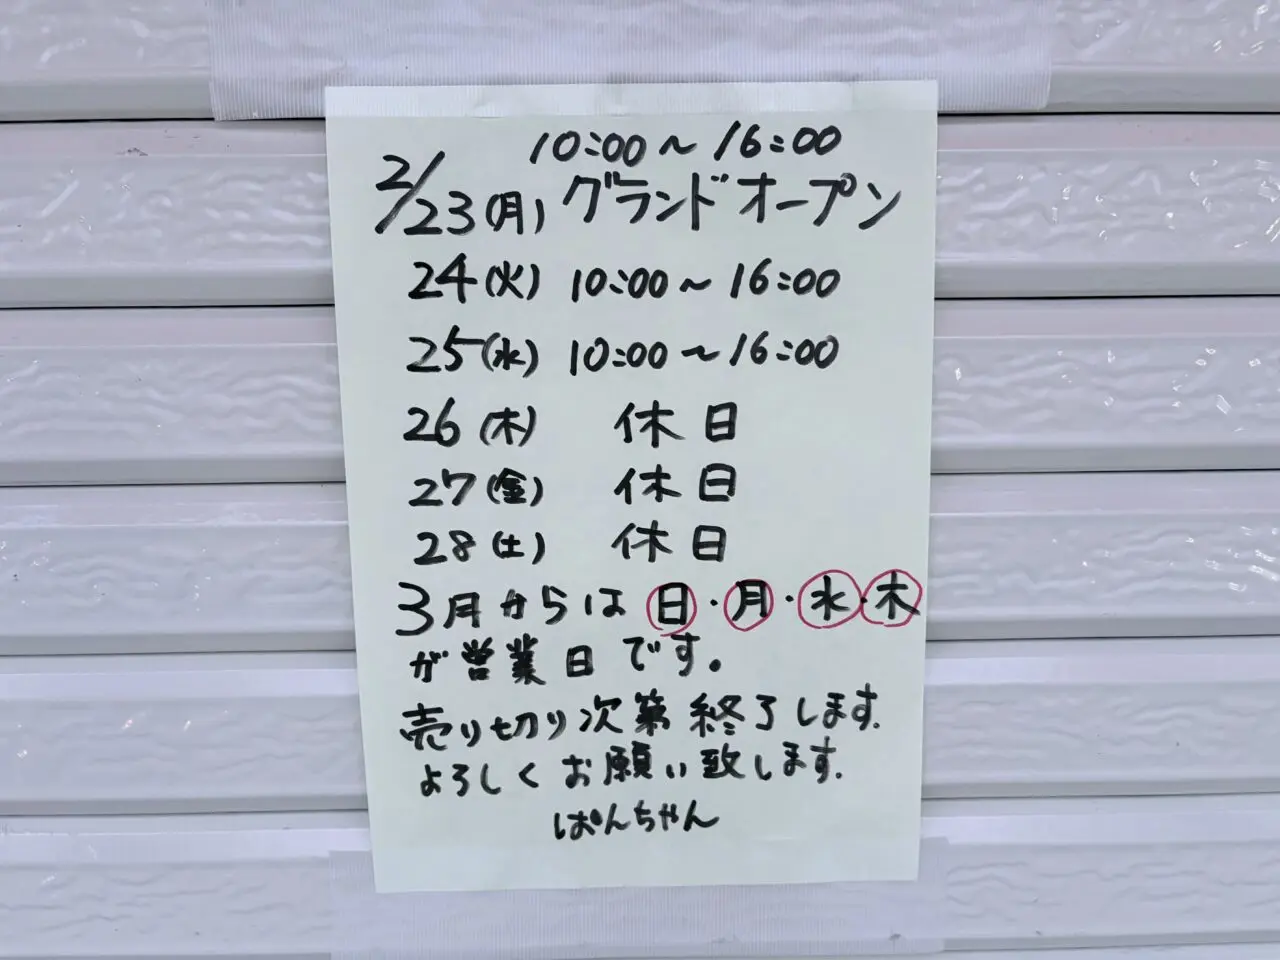 10:00〜16:00
2/23(月) グランドオープン
24(火) 10:00〜16:00
25(水) 10:00〜16:00
26(木) 休日
27(金) 休日
28(土) 休日
3月からは日・月・水・木
が営業日です。
売り切り次第終了します.
よろしくお願い致します.
ぱんちゃん